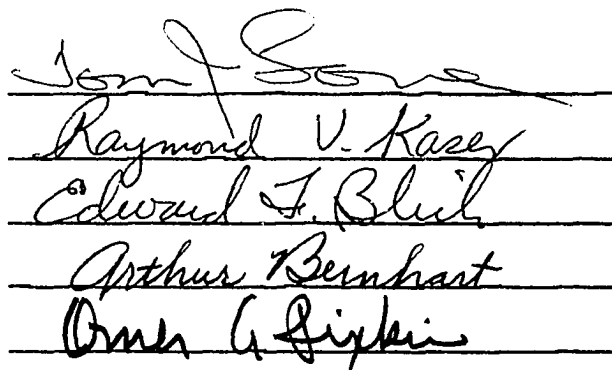 Tom J Love
Raymond V. Kaser
Edward F. Blick
Arthur Bernhart
Omer